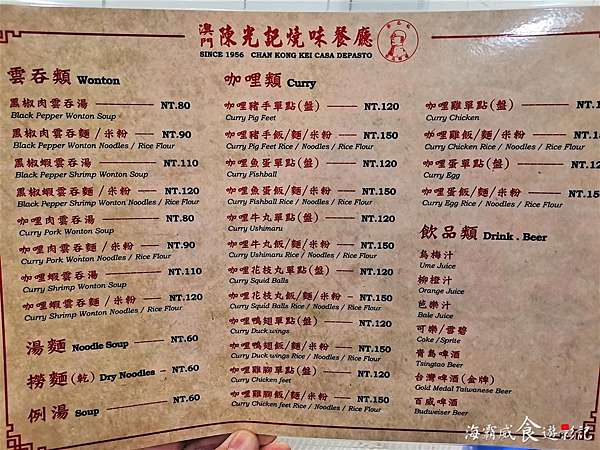 澳門 陳光記燒味餐廳
SINCE 1956 CHAN KONG KEI CASA DEPASTO
雲吞類 Wonton
黑椒肉雲吞湯 NT.80
Black Pepper Wonton Soup
黑椒肉雲吞麵/米粉 NT.90
Black Pepper Wonton Noodles / Rice Flour
黑椒蝦雲吞湯 NT.110
Black Pepper Shrimp Wonton Soup
黑椒蝦雲吞麵/米粉 NT.120
Black Pepper Shrimp Wonton Noodles / Rice Flour
咖哩肉雲吞湯 NT.80
Curry Pork Wonton Soup
咖哩肉雲吞麵/米粉 NT.90
Curry Pork Wonton Noodles / Rice Flour
咖哩蝦雲吞湯 NT.110
Curry Shrimp Wonton Soup
咖哩蝦雲吞麵/米粉 NT.120
Curry Shrimp Wonton Noodles / Rice Flour
湯麵 Noodle Soup NT.60
撈麵(乾) Dry Noodles NT.60
例湯 Soup NT.60
咖哩類 Curry
咖哩豬手單點(盤) NT.120
Curry Pig Feet
咖哩豬手飯/麵/米粉 NT.150
Curry Pig Feet Rice / Noodles / Rice Flour
咖哩魚蛋單點(盤) NT.120
Curry Fishball
咖哩魚蛋飯/麵/米粉 NT.150
Curry Fishball Rice / Noodles / Rice Flour
咖哩牛丸單點(盤) NT.120
Curry Ushimaru
咖哩牛丸飯/麵/米粉 NT.150
Curry Ushimaru Rice / Noodles / Rice Flour
咖哩花枝丸單點(盤) NT.120
Curry Squid Balls
咖哩花枝丸飯/麵/米粉 NT.150
Curry Squid Balls Rice / Noodles / Rice Flour
咖哩鴨翅單點(盤) NT.120
Curry Duck wings
咖哩鴨翅飯/麵/米粉 NT.150
Curry Duck wings Rice / Noodles / Rice Flour
咖哩雞腳單點(盤) NT.120
Curry Chicken feet
咖哩雞腳飯/麵/米粉 NT.150
Curry Chicken feet Rice / Noodles / Rice Flour
咖哩雞單點(盤) NT.1
Curry Chicken
咖哩雞飯/麵/米粉 NT.15
Curry Chicken Rice / Noodles / Rice Flour
咖哩蛋單點(盤) NT.12
Curry Egg
咖哩蛋飯/麵/米粉 NT.15
Curry Egg Rice / Noodles / Rice Flour
飲品類 Drink . Beer
烏梅汁
Ume Juice
柳橙汁
Orange Juice
芭樂汁
Bale Juice
可樂/雪碧
Coke /Sprite
青島啤酒
Tsingtao Beer
台灣啤酒(金牌)
Gold Medal Taiwanese Beer
百威啤酒
Budweiser Beer
海霸威食遊